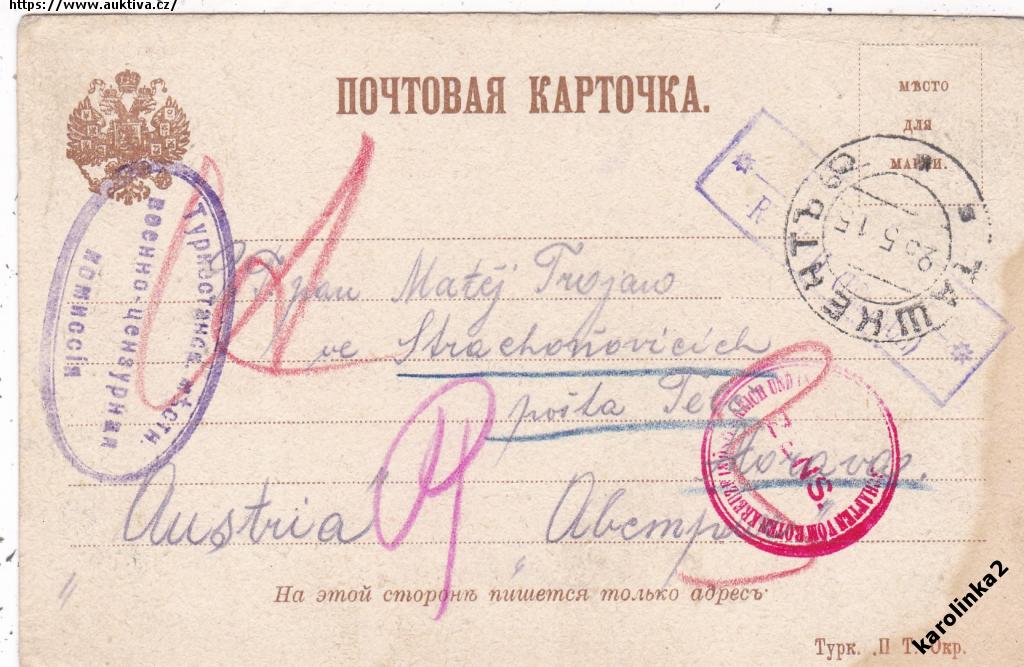 https://www.auktiva.cz/
ПОЧТОВАЯ КАРТОЧКА.
МѢСТО
ДЛЯ
МАРКИ.
R
ТАШКЕНТЪ
25 5 15
Туркестанск. мѣстн
военно-цензурная
комиссія
Pan Matěj Trojan
ve Strachoňovicích
pošta Telč
Morava.
Austria Австрія
На этой сторонѣ пишется только адресъ.
Турк. П Т. Окр.
karolinka2